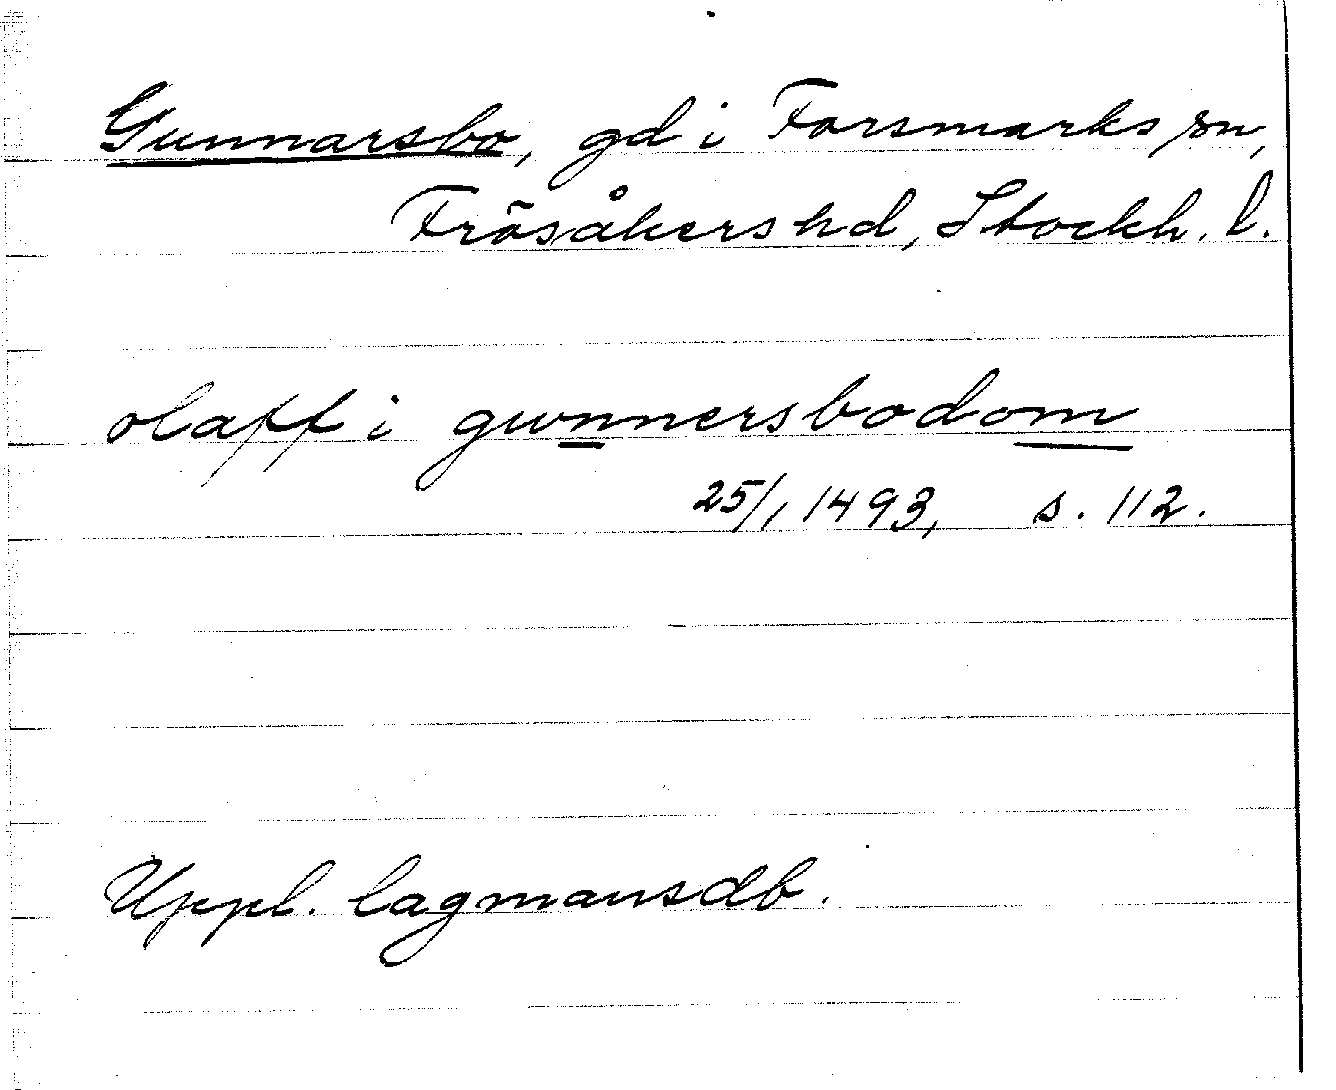 Gunnarsbo, gd i Forsmarks sn,
Frösåkers hd, Stockh. l.
olaff i gwnnersbodom
25/1 1493, s. 112.
Uppl. lagmansdb.